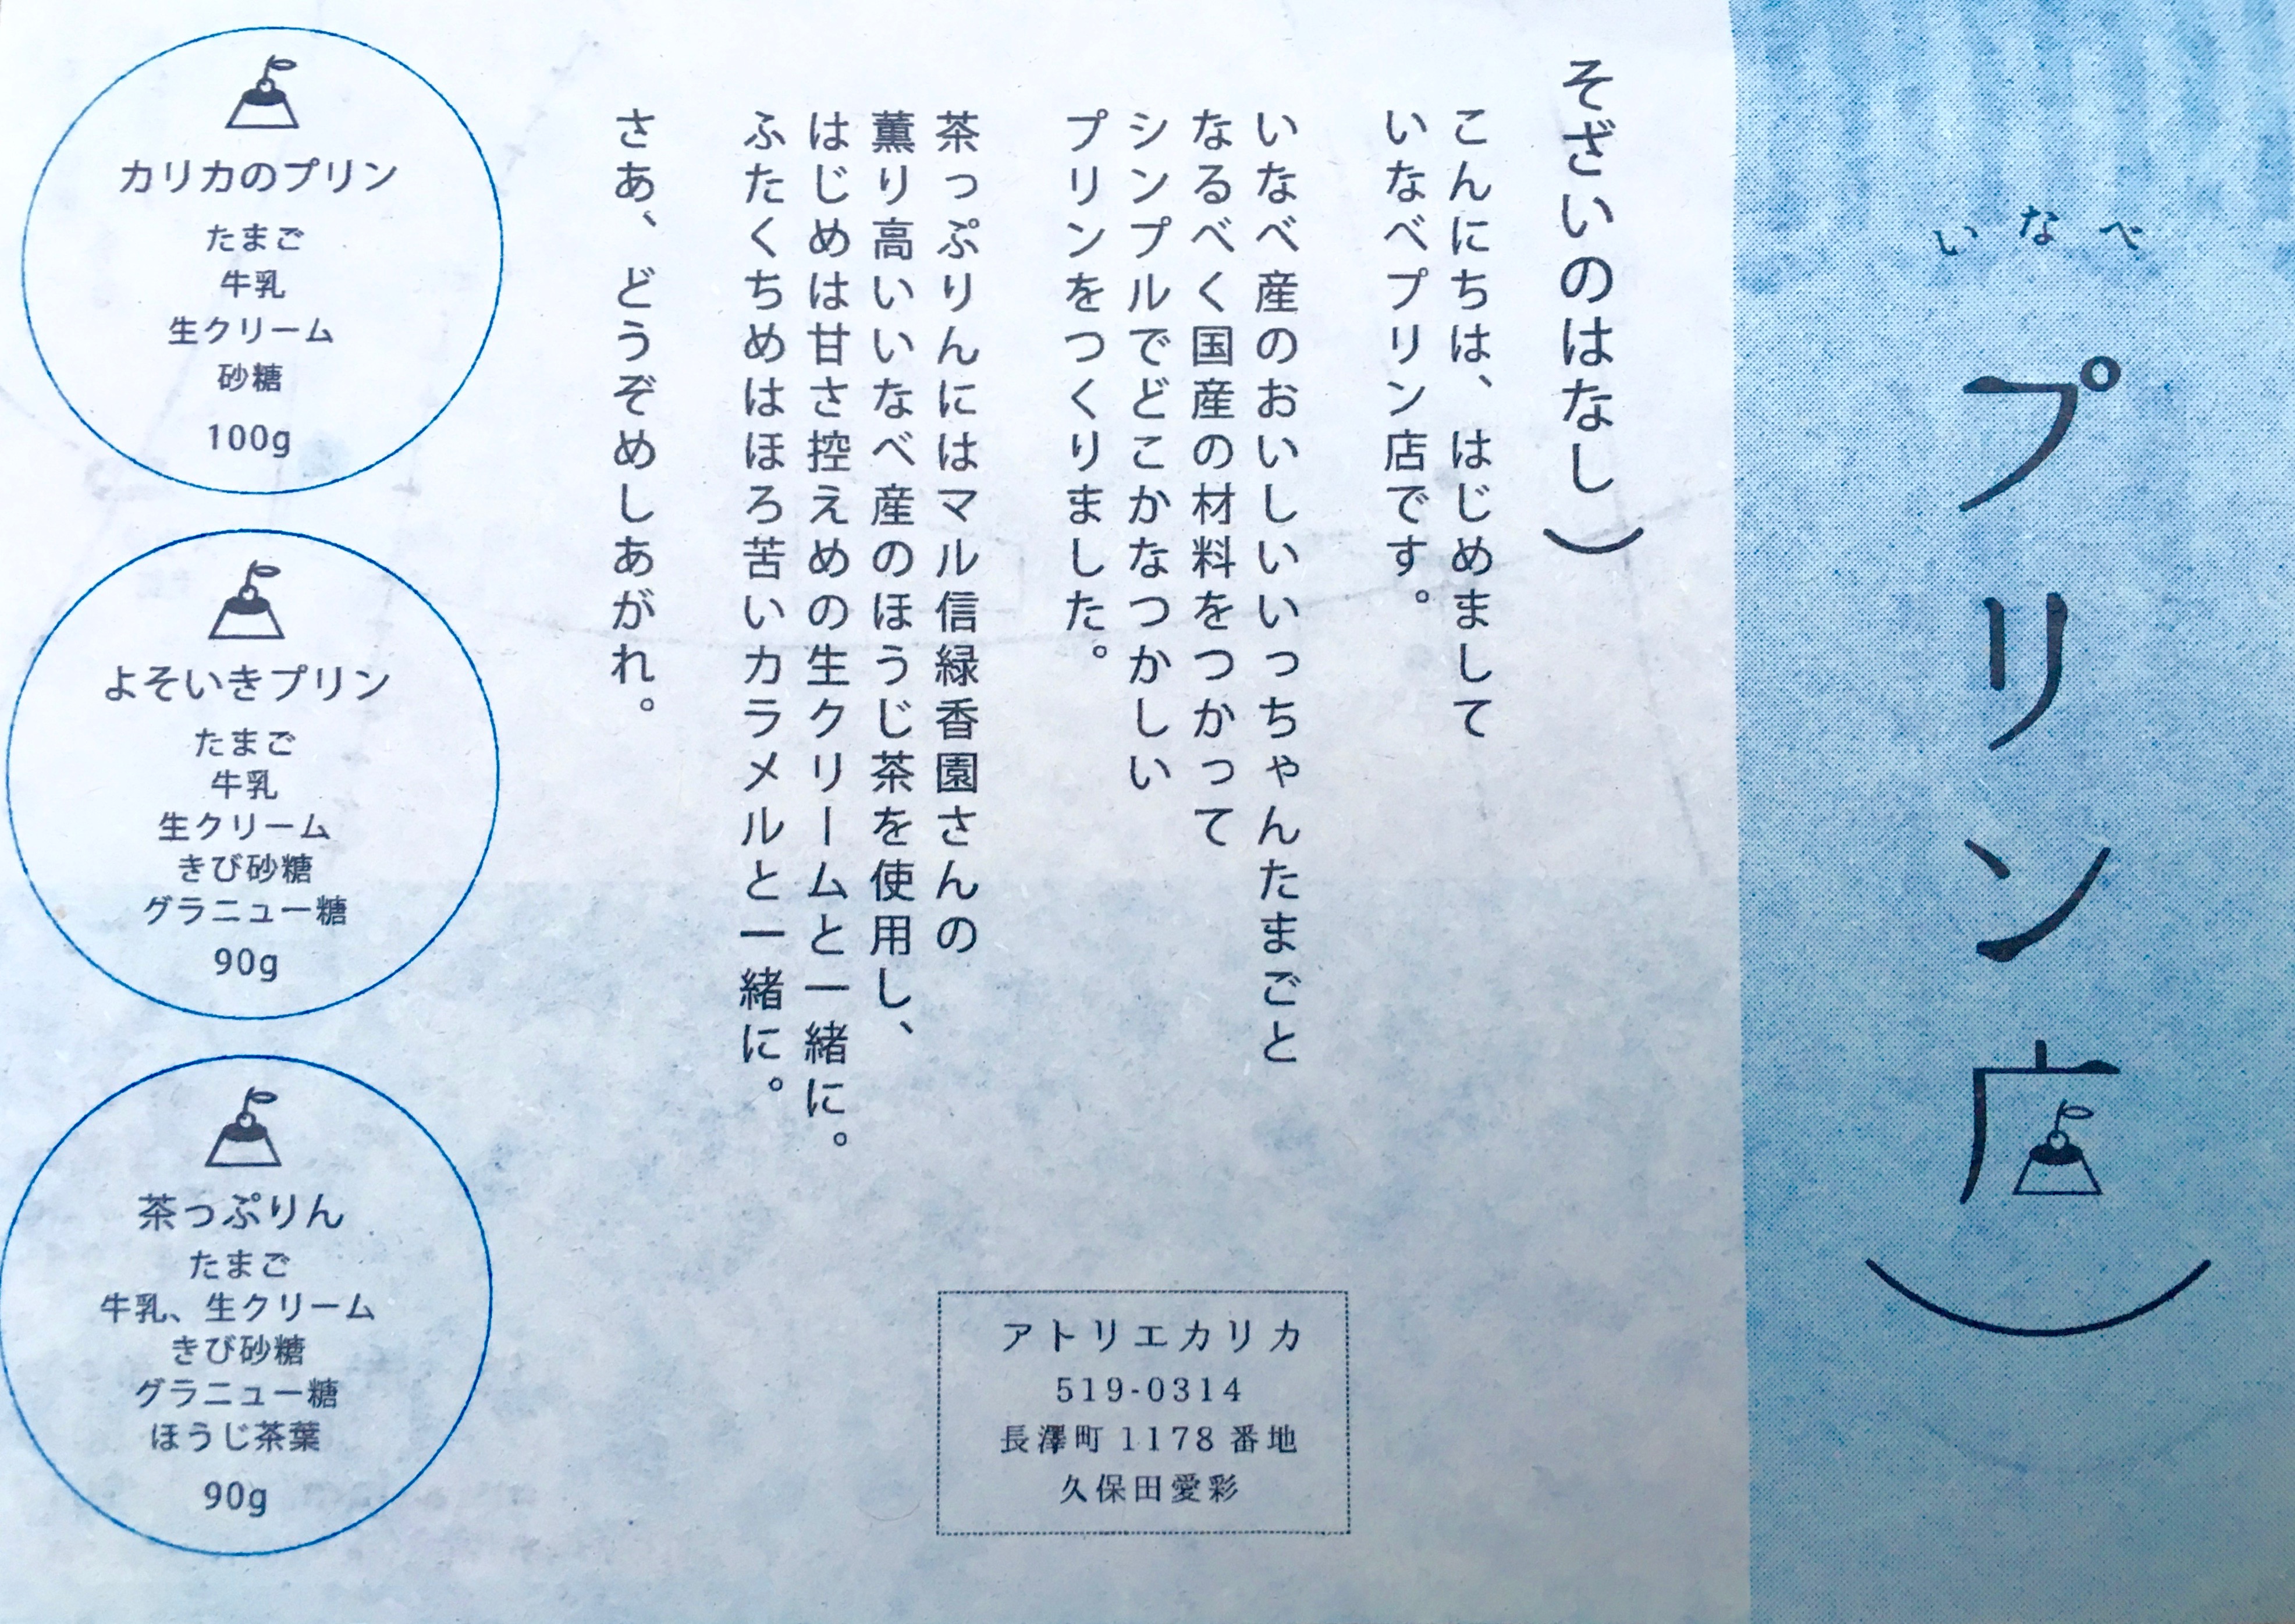 いなべ
プリン店
そざいのはなし
こんにちは、はじめまして
いなべプリン店です。
いなべ産のおいしいいっちゃんたまごと
なるべく国産の材料をつかって
シンプルでどこかなつかしい
プリンをつくりました。
茶っぷりんにはマル信緑香園さんの
薫り高いいなべ産のほうじ茶を使用し、
はじめは甘さ控えめの生クリームと一緒に。
ふたくちめはほろ苦いカラメルと一緒に。
さあ、どうぞめしあがれ。
アトリエカリカ
519-0314
長澤町1178番地
久保田愛彩
カリカのプリン
たまご
牛乳
生クリーム
砂糖
100g
よそいきプリン
たまご
牛乳
生クリーム
きび砂糖
グラニュー糖
90g
茶っぷりん
たまご
牛乳、生クリーム
きび砂糖
グラニュー糖
ほうじ茶葉
90g